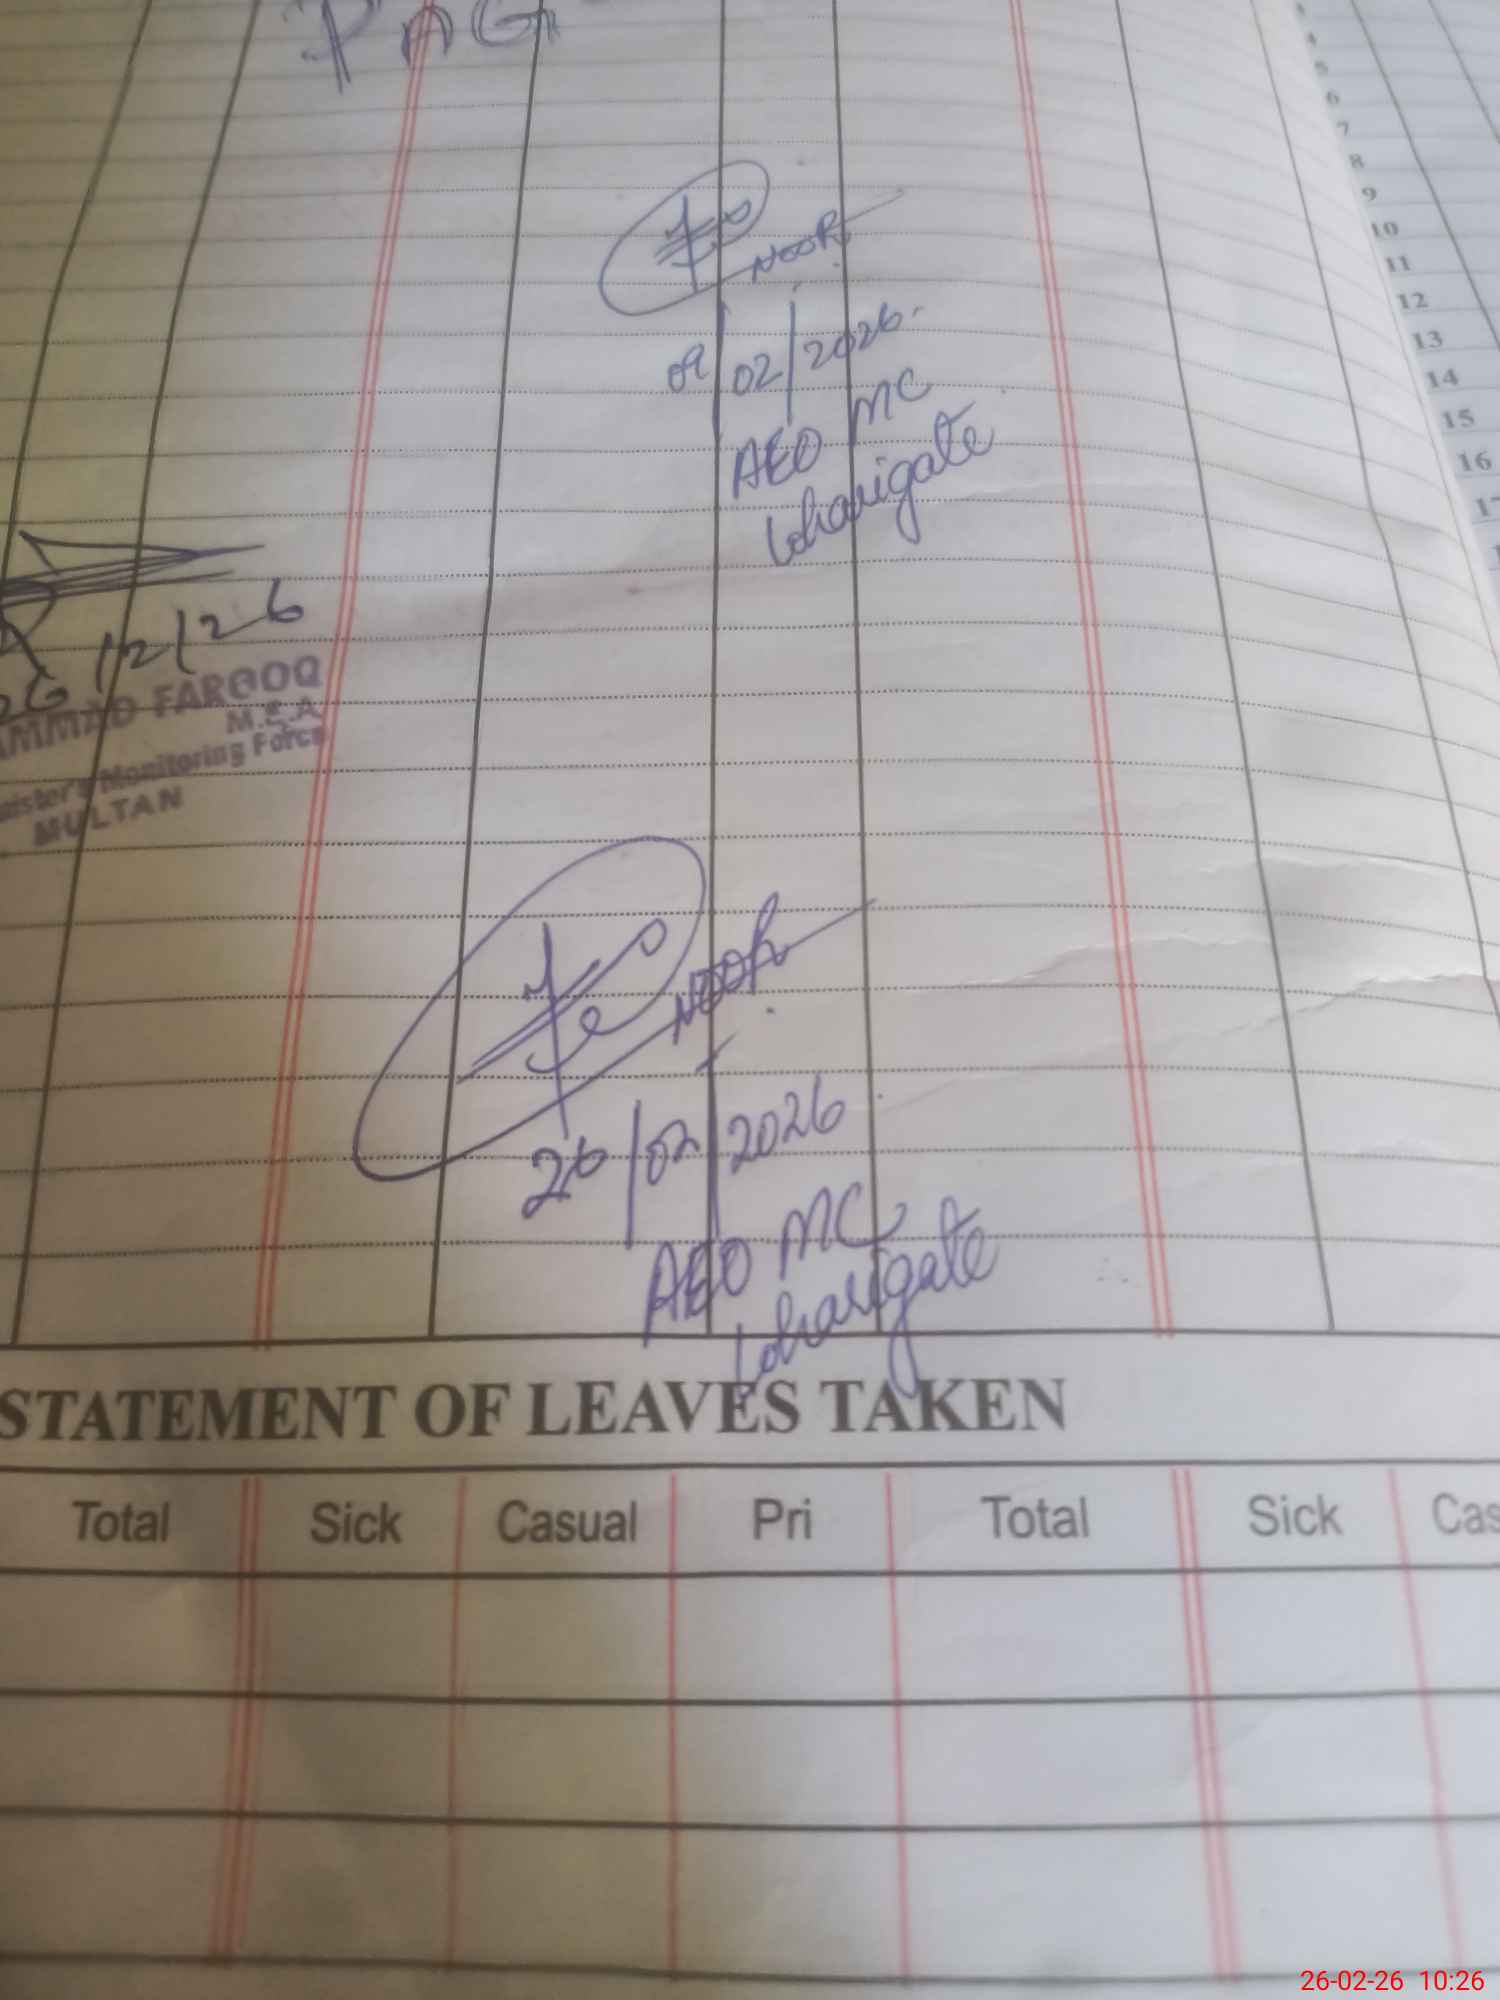 PAG
NOOR
09/02/2026.
AEO MC
Loharigate
26/2/26
AMMAD FAROOQ
M.E.A
nister's Monitoring Force
MULTAN
NOOR
26/02/2026
AEO MC
Loharigate
STATEMENT OF LEAVES TAKEN
Total Sick Casual Pri Total Sick Cas
6
7
8
9
10
11
12
13
14
15
16
17
26-02-26 10:26